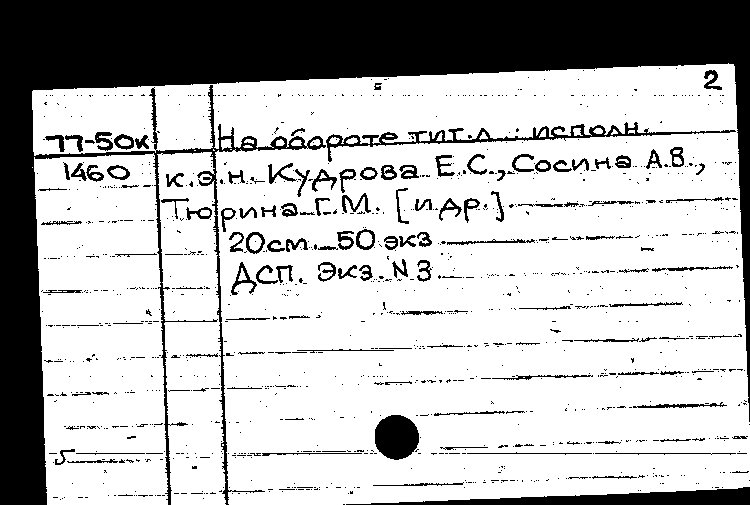 2
77-50к На обороте тит.л.: исполн.
1460 к.э.н. Кудрова Е.С., Сосина А.В.,
Тюрина Г.М. [и др.]
20см. 50 экз.
ДСП. Экз. N 3
5